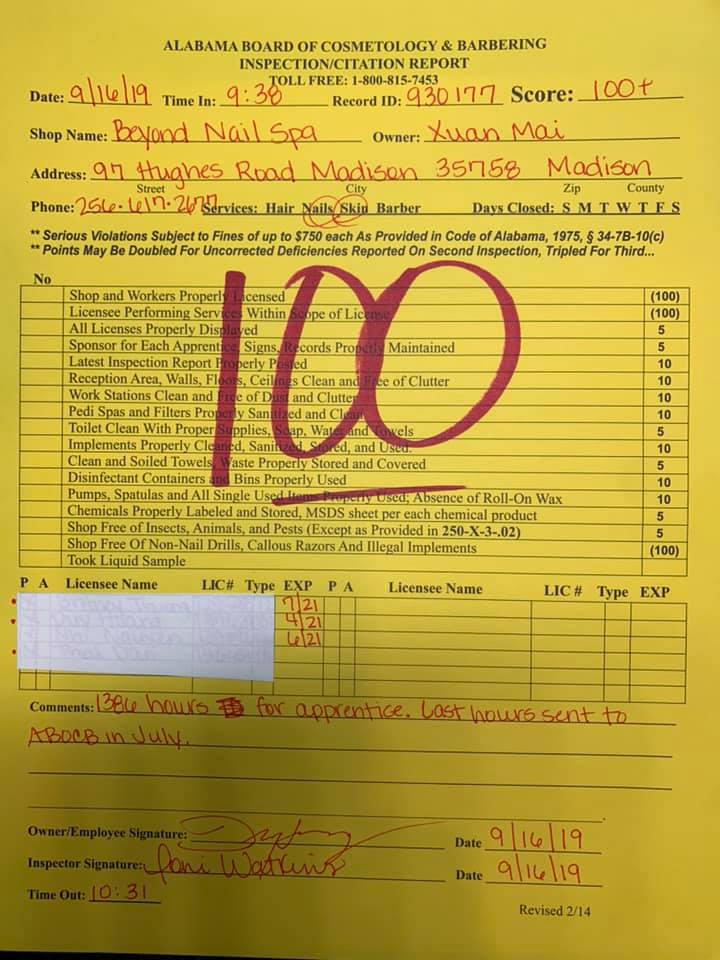 ALABAMA BOARD OF COSMETOLOGY & BARBERING
INSPECTION/CITATION REPORT
TOLL FREE: 1-800-815-7453
Date: 9/16/19 Time In: 9:38 Record ID: 930177 Score: 100+
Shop Name: Beyond Nail Spa Owner: Xuan Mai
Address: 97 Hughes Road Madison 35758 Madison
Street City Zip County
Phone: 256-617-2677 Services: Hair Nails Skin Barber Days Closed: S M T W T F S
** Serious Violations Subject to Fines of up to $750 each As Provided in Code of Alabama, 1975, § 34-7B-10(c)
** Points May Be Doubled For Uncorrected Deficiencies Reported On Second Inspection, Tripled For Third...
No
100
Shop and Workers Properly Licensed (100)
Licensee Performing Services Within Scope of License (100)
All Licenses Properly Displayed 5
Sponsor for Each Apprentice, Signs, Records Properly Maintained 5
Latest Inspection Report Properly Posted 10
Reception Area, Walls, Floors, Ceilings Clean and Free of Clutter 10
Work Stations Clean and Free of Dust and Clutter 10
Pedi Spas and Filters Properly Sanitized and Clean 10
Toilet Clean With Proper Supplies, Soap, Water and Towels 5
Implements Properly Cleaned, Sanitized, Stored, and Used. 10
Clean and Soiled Towels, Waste Properly Stored and Covered 5
Disinfectant Containers and Bins Properly Used 10
Pumps, Spatulas and All Single Used Items Properly Used; Absence of Roll-On Wax 10
Chemicals Properly Labeled and Stored, MSDS sheet per each chemical product 5
Shop Free of Insects, Animals, and Pests (Except as Provided in 250-X-3-.02) 5
Shop Free Of Non-Nail Drills, Callous Razors And Illegal Implements (100)
Took Liquid Sample
P A Licensee Name LIC# Type EXP P A Licensee Name LIC # Type EXP
7/21
4/21
6/21
Comments: 1386 hours for apprentice. Last hours sent to
ABOCB in July.
Owner/Employee Signature: Date 9/16/19
Inspector Signature: Joni Watkins Date 9/16/19
Time Out: 10:31
Revised 2/14